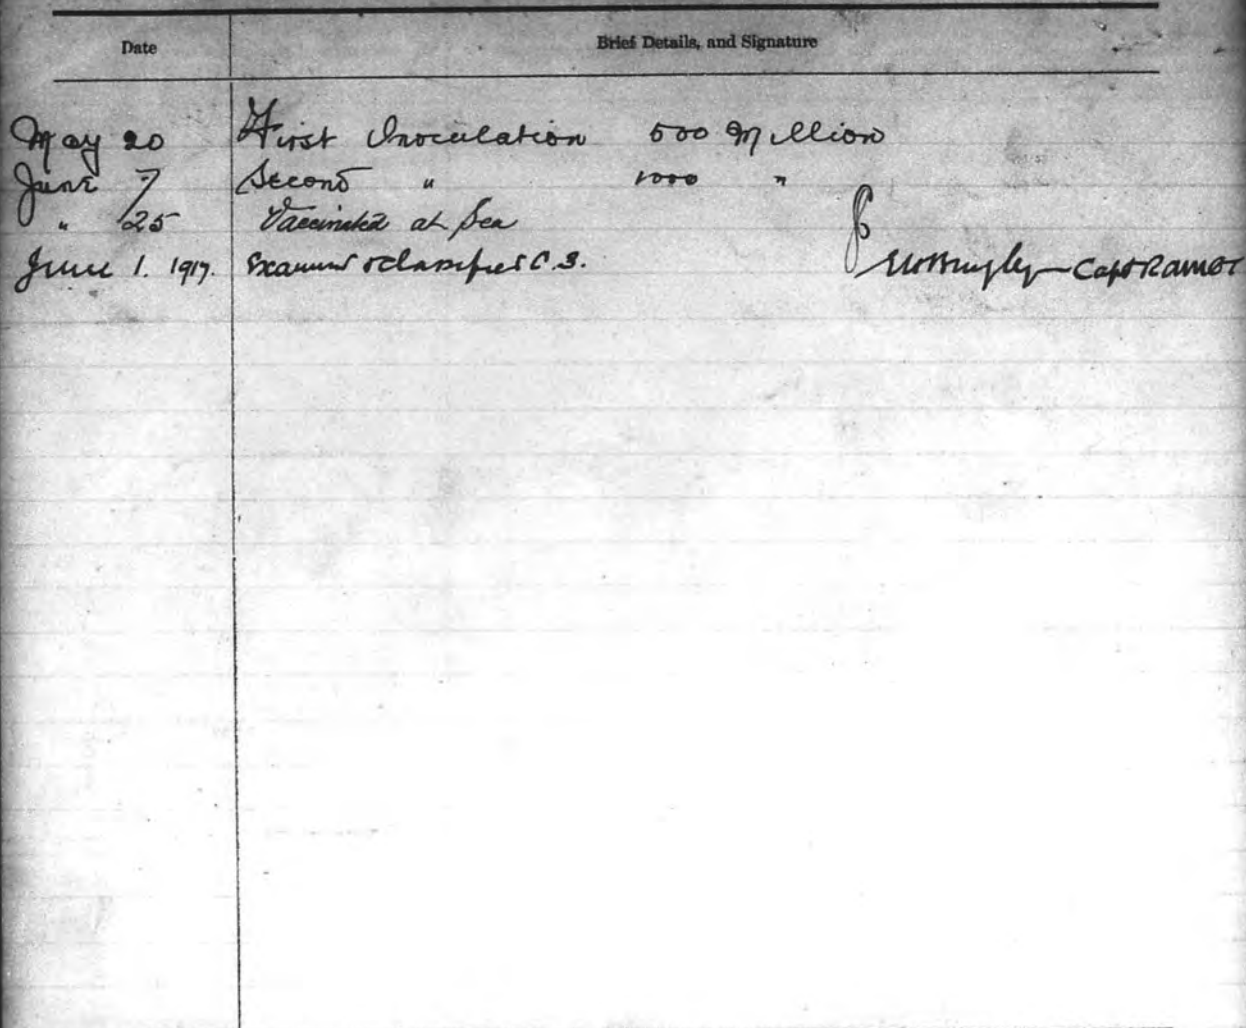 Date Brief Details, and Signature
May 20 First Inoculation 500 Million
June 7 Second " 1000 "
" 25 Vaccinated at Sea
June 1. 1917. Examined & classified C.3. Capt RAMC